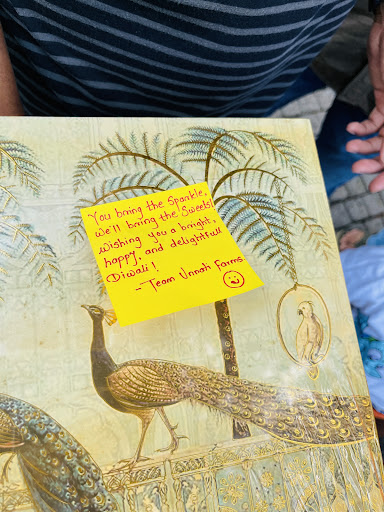 You bring the Sparkle,
We'll bring the Sweets!
Wishing you a bright,
happy, and delightfull
Diwali!
- Team Unnati Farms